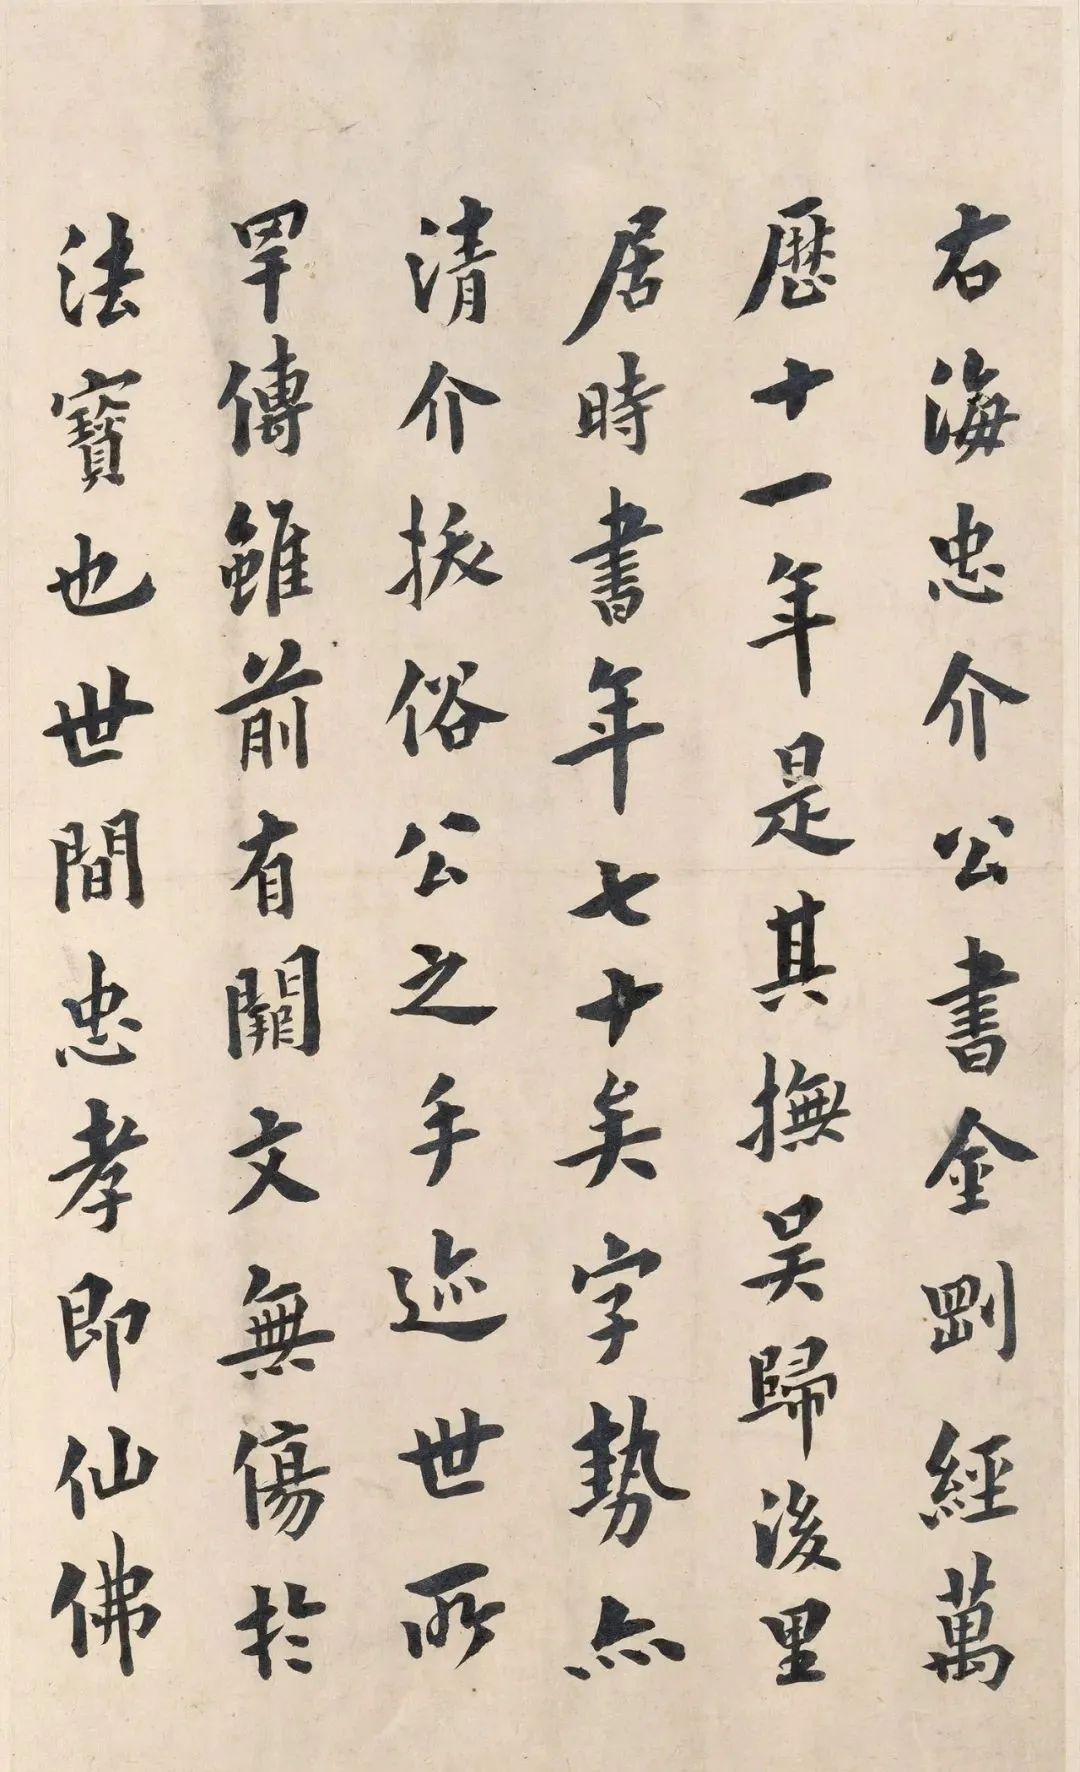 右海忠介公書金剛經萬
歷十一年是其撫吴歸後里
居時書年七十矣字勢亦
清介振俗公之手迹世所
罕傳雖前有闕文無傷於
法寶也世間忠孝即仙佛